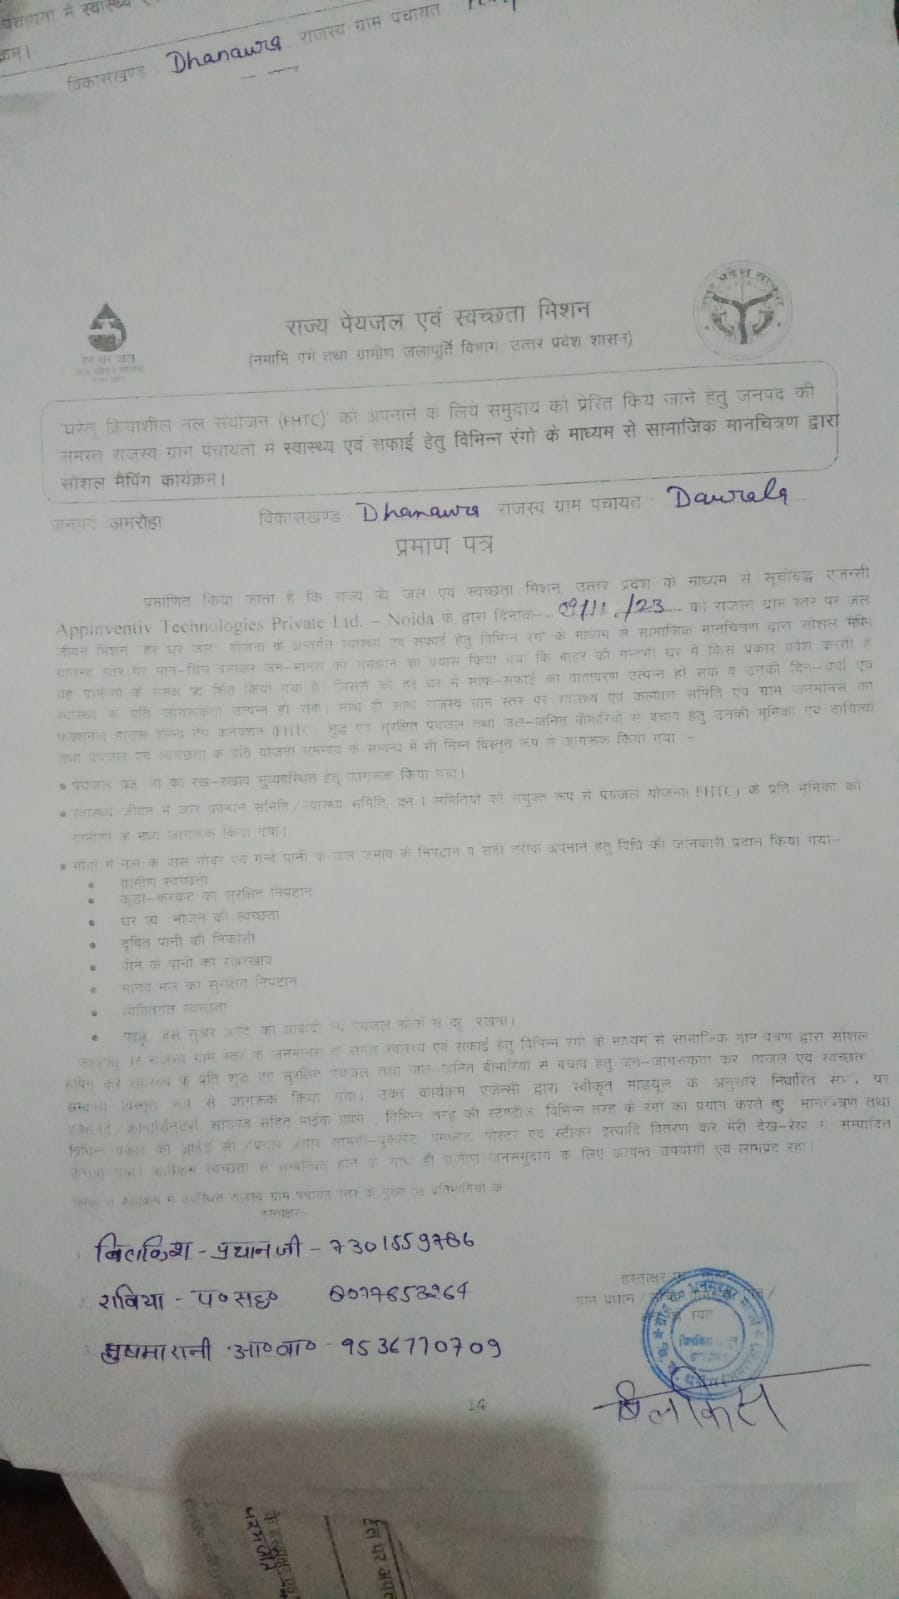 पंचायतो में स्वास्थ्य
क्रम।
विकासखण्ड : Dhanawra राजस्व ग्राम पंचायत
उत्तर प्रदेश
राज्य पेयजल एवं स्वच्छता मिशन
हर घर जल
(नमामि गंगे तथा ग्रामीण जलापूर्ति विभाग, उत्तर प्रदेश शासन)
'घरेलू क्रियाशील नल संयोजन (FHTC)' को अपनाने के लिये समुदाय को प्रेरित किये जाने हेतु जनपद की
समस्त राजस्व ग्राम पंचायतो में स्वास्थ्य एवं सफाई हेतु विभिन्न रंगो के माध्यम से सामाजिक मानचित्रण द्वारा
सोशल मैपिंग कार्यक्रम।
जनपद अमरोहा विकासखण्ड : Dhanawra राजस्व ग्राम पंचायत : Dawrala
प्रमाण पत्र
प्रमाणित किया जाता है कि राज्य पेय जल एवं स्वच्छता मिशन, उत्तर प्रदेश के माध्यम से सूचीबद्ध एजेन्सी
Appinventiv Technologies Private Ltd. – Noida के द्वारा दिनांक-... 09/11./23.... को राजस्व ग्राम स्तर पर जल
जीवन मिशन 'हर घर जल' योजना के अन्तर्गत स्वास्थ्य एवं सफाई हेतु विभिन्न रंगों के माध्यम से सामाजिक मानचित्रण द्वारा सोशल मैपिंग
स्तर पर मान-चित्र बनाकर जन-मानस को समझाने का प्रयास किया गया कि बाहर की गन्दगी घर में किस प्रकार प्रवेश करती है
यह ग्रामीणों के समक्ष प्रदर्शित किया गया है। जिससे की हर घर में साफ-सफाई का वातावरण उत्पन्न हो सके व उनकी दिन-चर्या एवं
स्वास्थ्य के प्रति जागरूकता उत्पन्न हो सके। साथ ही साथ राजस्व ग्राम स्तर पर स्वास्थ्य एवं कल्याण समिति एवं ग्राम जनमानस को
फंक्शनल हाउस होल्ड टैप कनेक्शन (FHTC), शुद्ध एवं सुरक्षित पेयजल तथा जल-जनित बीमारियों से बचाव हेतु उनकी भूमिका एवं दायित्वों
तथा पेयजल एवं स्वच्छता के प्रति योजना समन्वय के सम्बन्ध में भी निम्न विस्तृत रूप से जागरूक किया गया :-
• पेयजल का रख-रखाव सुव्यवस्थित हेतु जागरूक किया गया।
• स्वास्थ्य जीवन में जल प्रबन्धन समिति/स्वास्थ्य समिति, समितियों को संयुक्त रूप से पेयजल योजना (FHTC) के प्रति भूमिका को
ग्रामीणों के मध्य जागरूक किया गया।
• गाँवों में नल के पास गोबर एवं गन्दे पानी के जल जमाव के निपटान व सही तरीके अपनाने हेतु विधि की जानकारी प्रदान किया गया:-
• ग्रामीण स्वच्छता
• कूड़ा-करकट का सुरक्षित निपटान
• घर एवं भोजन की स्वच्छता
• दूषित पानी की निकासी
• पीने के पानी का रखरखाव
• मानव मल का सुरक्षित निपटान
• व्यक्तिगत स्वच्छता
• जैसे सुअर आदि को आबादी एवं पेयजल स्रोतों से दूर रखना।
राजस्व ग्राम स्तर के जनमानस के समक्ष स्वास्थ्य एवं सफाई हेतु विभिन्न रंगो के माध्यम से सामाजिक मानचित्रण द्वारा सोशल
मैपिंग कर स्वास्थ्य के प्रति शुद्ध एवं सुरक्षित पेयजल तथा जल-जनित बीमारियों से बचाव हेतु जन-जागरूकता कर पेयजल एवं स्वच्छता
सम्बन्धी विस्तृत रूप से जागरूक किया गया। उक्त कार्यक्रम एजेन्सी द्वारा स्वीकृत माड्यूल के अनुसार निर्धारित समय पर
साउण्ड सहित माईक प्रयोग, विभिन्न तरह की स्टैण्डीज, विभिन्न तरह के रंगो का प्रयोग करते हुए मानचित्रण तथा
विभिन्न प्रकार की आई०ई०सी०/प्रचार प्रसार सामग्री-बुकलेट, पम्फलेट, पोस्टर एवं स्टीकर इत्यादि वितरण कर मेरी देख-रेख में सम्पादित
कराया गया। कार्यक्रम स्वच्छता से सम्बन्धित होने के साथ ही ग्रामीण जनसमुदाय के लिए अत्यन्त उपयोगी एवं लाभप्रद रहा।
कार्यक्रम में उपस्थित राजस्व ग्राम पंचायत स्तर के मुख्य एवं प्रतिभागियों के
हस्ताक्षर:-
बिलकिश - प्रधान जी - 7301559786
राबिया - प० सह० 8077853264
सुषमा रानी आ० वा० - 9536770709
हस्ताक्षर
ग्राम प्रधान
14
बिलकिस